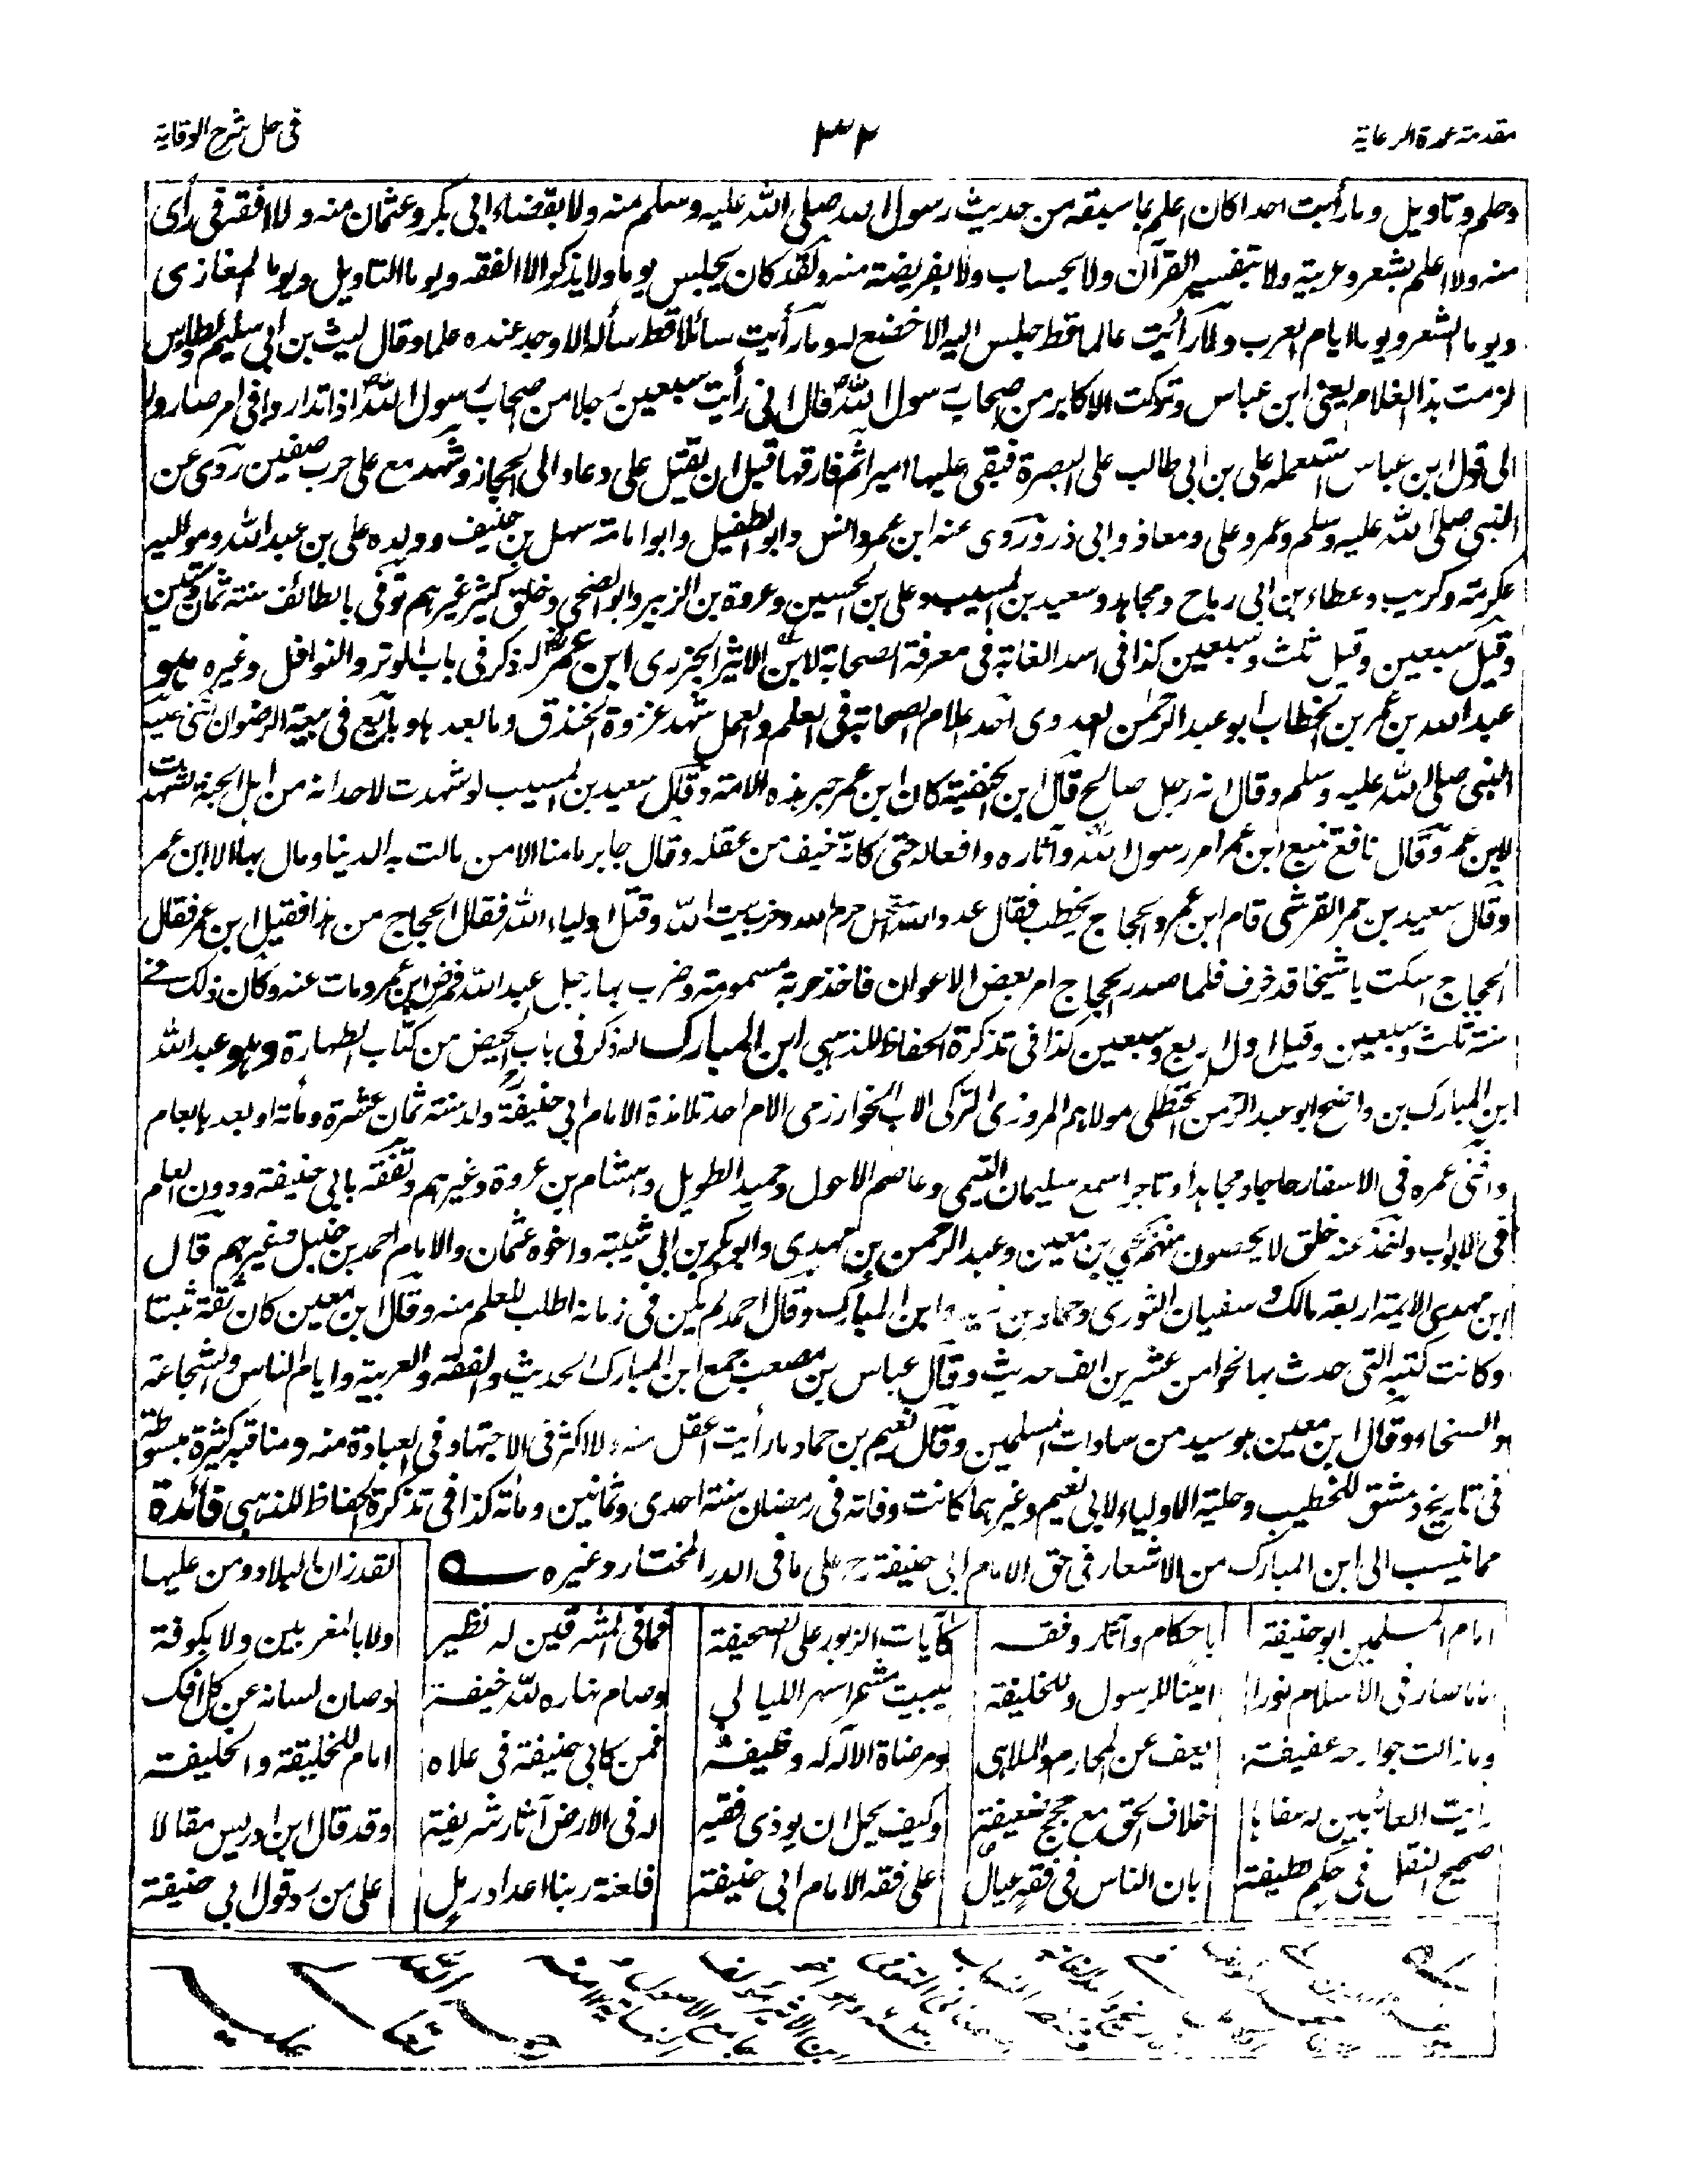 مقدمة عمدة الرعاية
٣٢
فى حل شرح الوقاية
وحلم وتاويل وما رأيت احدا كان اعلم بما سبقه من حديث رسول الله صلى الله عليه وسلم منه ولا بقضاء ابى بكر وعثمان منه ولا افقه فى رأى
منه ولا اعلم بشعر وعربية ولا بتفسير القرآن ولا بحساب ولا بفريضة منه ولقد كان يجلس يوما ولا يذكر الا الفقه ويوما التاويل ويوما المغازى
ويوما الشعر ويوما ايام العرب وما رأيت عالما قط جلس اليه الا خضع له وما رأيت سائلا قط سأله الا وجد عنده علما وقال ليث بن ابى سليم لطاؤس
لزمت هذا الغلام يعنى ابن عباس وتركت الاكابر من اصحاب رسول الله قال انى رأيت سبعين رجلا من اصحاب رسول الله اذا تداروا فى امر صاروا
الى قول ابن عباس استعمله على بن ابى طالب على البصرة فبقى عليها اميرا ثم فارقها قبل ان يقتل على وعاد الى الحجاز وشهد مع على حرب صفين روى عن
النبى صلى الله عليه وسلم وعمر وعلى ومعاذ وابى ذر وروى عنه ابن عمر وانس وابو الطفيل وابو امامة سهل بن حنيف وولده على بن عبد الله ومواليه
عكرمة وكريب وعطاء بن ابى رباح ومجاهد وسعيد بن المسيب وعلى بن الحسين وعروة بن الزبير وابو الضحى وخلق كثير غيرهم توفى بالطائف سنة ثمان وستين
وقيل سبعين وقيل ثلث وسبعين كذا فى اسد الغابة فى معرفة الصحابة لابن الاثير الجزرى ابن عمر له ذكر فى باب الوتر والنوافل وغيره هو
عبد الله بن عمر بن الخطاب ابو عبد الرحمن العدوى احد اعلام الصحابة فى العلم والعمل شهد غزوة الخندق وما بعدها وبايع فى بيعة الرضوان اثنى عليه
النبى صلى الله عليه وسلم وقال انه رجل صالح قال ابن الحنفية كان ابن عمر حبر هذه الامة وقال سعيد بن المسيب لو شهدت لاحد انه من اهل الجنة لشهدت
لابن عمر وقال نافع تتبع ابن عمر امر رسول الله وآثاره وافعاله حتى كانه خيف من عقله وقال جابر ما منا الا من مالت به الدنيا ومال بها الا ابن عمر
وقال سعيد بن عمر القرشى قام ابن عمر والحجاج يخطب فقال عدو الله استحل حرم الله وخرب بيت الله وقتل اولياء الله فقال الحجاج من هذا فقيل ابن عمر فقال
الحجاج اسكت يا شيخا قد خرف فلما صدر الحجاج امر بعض الاعوان فاخذ حربة مسمومة وضرب بها رجل عبد الله فمرض ابن عمر ومات عنه وكان ذلك فى
سنة ثلث وسبعين وقيل اول اربع وسبعين كذا فى تذكرة الحفاظ للذهبى ابن المبارك له ذكر فى باب الحيض من كتاب الطهارة وهو عبد الله
ابن المبارك بن واضح ابو عبد الرحمن الحنظلى مولاهم المروزى التركى الاب الخوارزمى الام احد تلامذة الامام ابى حنيفة ولد سنة ثمان عشرة ومأة او بعدها بعام
وافنى عمره فى الاسفار حاجا ومجاهدا وتاجرا سمع سليمان التيمى وعاصم الاحول وحميد الطويل وهشام بن عروة وغيرهم وتفقه بابى حنيفة ودون العلم
فى الابواب واخذ عنه خلق لا يحصون منهم يحيى بن معين وعبد الرحمن بن مهدى وابو بكر بن ابى شيبة واخوه عثمان والامام احمد بن حنبل وغيرهم قال
ابن مهدى الايمة اربعة مالك وسفيان الثورى وحماد بن زيد وابن المبارك وقال احمد لم يكن فى زمانه اطلب للعلم منه وقال ابن معين كان ثقة ثبتا
وكانت كتبه التى حدث بها نحوا من عشرين الف حديث وقال عباس بن مصعب جمع ابن المبارك الحديث والفقه والعربية وايام الناس والشجاعة
والسخاء وقال ابن معين هو سيد من سادات المسلمين وقال نعيم بن حماد ما رأيت اعقل منه ولا اكثر فى الاجتهاد فى العبادة منه ومناقبه كثيرة مبسوطة
فى تاريخ دمشق للخطيب وحلية الاولياء لابى نعيم وغيرهما كانت وفاته فى رمضان سنة احدى وثمانين ومأة كذا فى تذكرة الحفاظ للذهبى فائدة
مما ينسب الى ابن المبارك من الاشعار فى حق الامام ابى حنيفة رح على ما فى الدر المختار وغيره ه لقد زان البلاد ومن عليها
امام المسلمين ابو حنيفة باحكام وآثار وفقه كآيات الزبور على الصحيفة فما فى المشرقين له نظير ولا بالمغربين ولا بكوفة
اماما صار فى الاسلام نورا امينا للرسول وللخليفة يبيت مشمرا سهر الليالى وصام نهاره لله خيفة وصان لسانه عن كل افك
وما زالت جوارحه عفيفة يعف عن المحارم والملاهى ومرضاة الاله له وظيفة فمن كابى حنيفة فى علاه امام للخليقة والخليفة
رأيت العائبين له سفاها خلاف الحق مع حجج ضعيفة وكيف يحل ان يوذى فقيه له فى الارض آثار شريفة وقد قال ابن ادريس مقالا
صحيح النقل فى حكم لطيفة بان الناس فى فقه عيال على فقه الامام ابى حنيفة فلعنة ربنا اعداد رمل على من رد قول ابى حنيفة